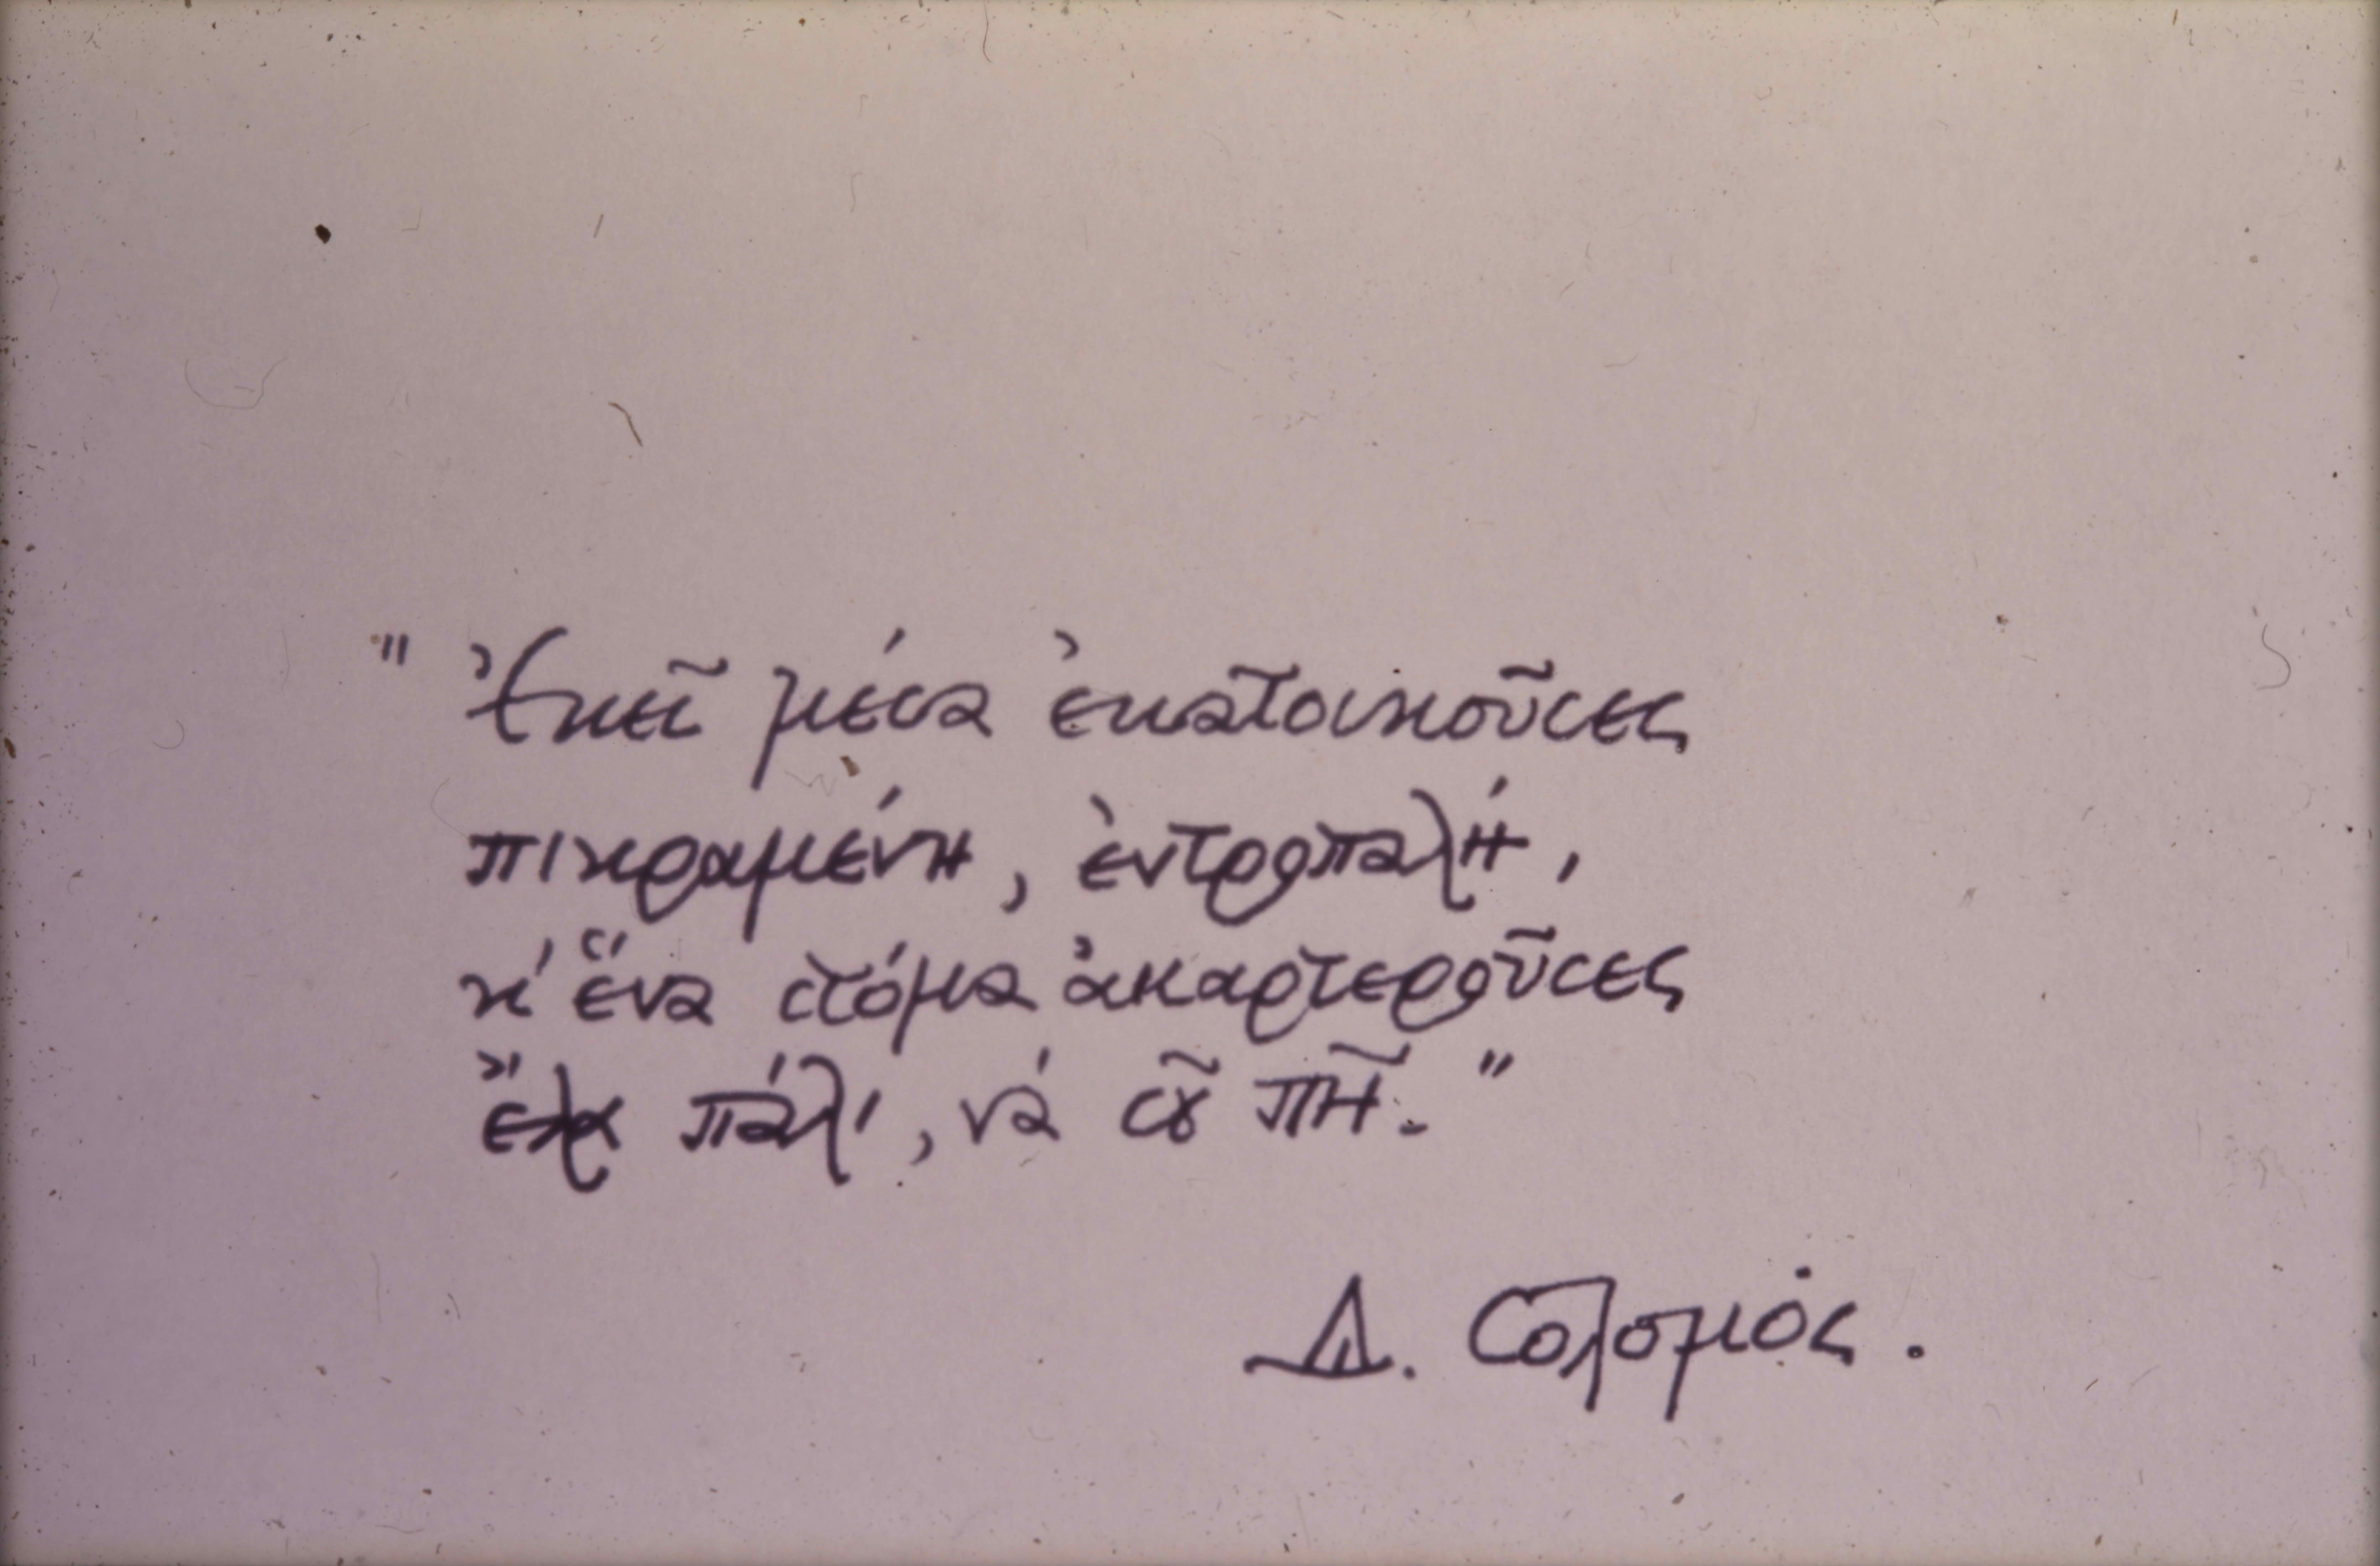 "Ἐκεῖ μέσα ἐκατοικοῦσες
πικραμένη, ἐντροπαλή,
κ' ἕνα στόμα ἀκαρτεροῦσες
ἔλα πάλι, νά σοῦ πῆ."
Δ. Σολομός.